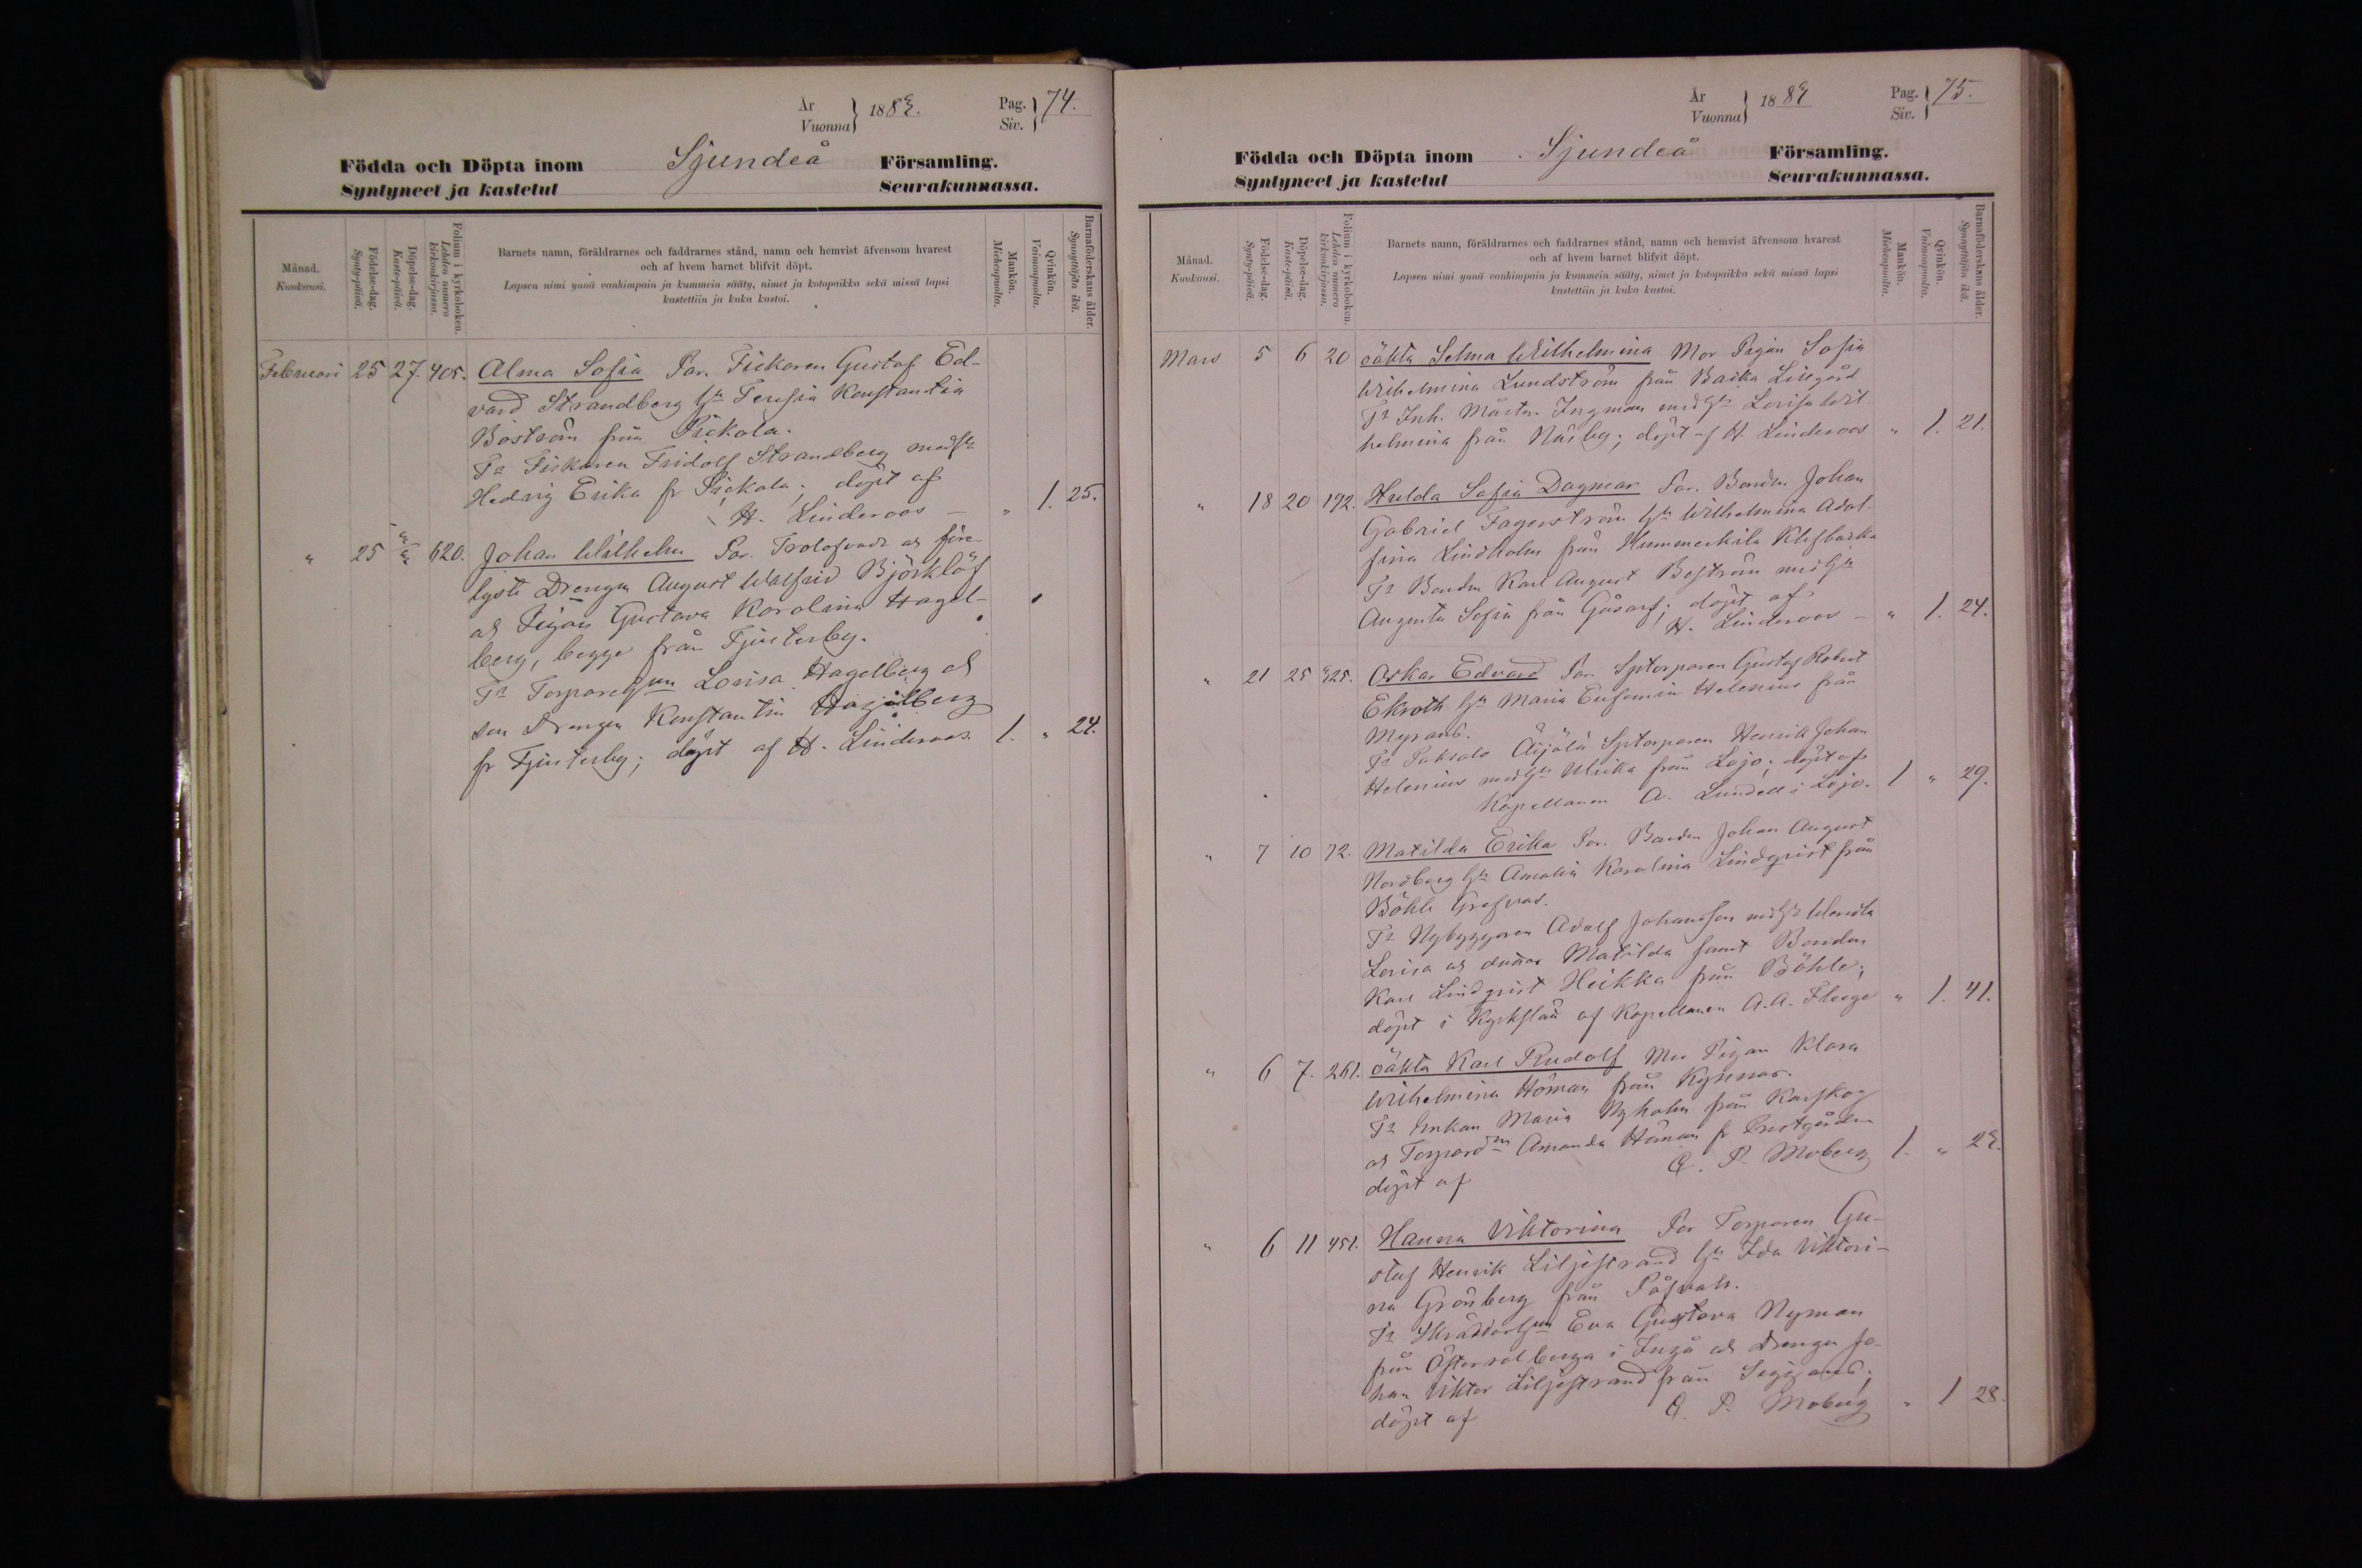 År
Vuonna
188
Pag.
Siv.
74.
Födda och Döpta inom Sjundeå Församling.
Syntyneet ja kastetut Seurakunnassa.
Månad.
Kuukausi.
Födelse-dag.
Synty-päivä.
Döpelse-dag.
Kaste-päivä.
Folium i kyrkoboken.
Lehden numero kirkonkirjassa.
Barnets namn, föräldrarnes och faddrarnes stånd, namn och hemvist äfvensom hvarest
och af hvem barnet blifvit döpt.
Lapsen nimi ynnä vanhimpain ja kummein sääty, nimet ja kotopaikka sekä missä lapsi
kastettiin ja kuka kastoi.
Mankön.
Miehenpuolta.
Qvinkön.
Vaimonpuolta.
Barnaföderskans ålder.
Synnyttäjän ikä.
Februari 25 27. 405. Alma SofiaFör. Fiskaren Gustaf Ed-
vard Strandberg Hu Teresia Konstantia
Boström från Pickala.
Fr Fiskaren Fridolf Strandberg med Hu
Hedvig Erika fr Pickala; döpt af
H. Linderoos — " 1. 25.
" 25 620. Johan Wilhelm För. Trolofvade och före-
lyste Drengen August Walfrid Björklöf
och Pigan Gustava Karolina Hagel-
berg, begge från Tjusterby.
Fr Torparehun Lovisa Hagelberg och
son Drengen Konstantin Hagelberg
fr Tjusterby; döpt af H. Linderoos. 1. " 24.
År
Vuonna
188
Pag.
Siv.
75.
Födda och Döpta inom Sjundeå Församling.
Syntyneet ja kastetut Seurakunnassa.
Månad.
Kuukausi.
Födelse-dag.
Synty-päivä.
Döpelse-dag.
Kaste-päivä.
Folium i kyrkoboken.
Lehden numero kirkonkirjassa.
Barnets namn, föräldrarnes och faddrarnes stånd, namn och hemvist äfvensom hvarest
och af hvem barnet blifvit döpt.
Lapsen nimi ynnä vanhimpain ja kummein sääty, nimet ja kotopaikka sekä missä lapsi
kastettiin ja kuka kastoi.
Mankön.
Miehenpuolta.
Qvinkön.
Vaimonpuolta.
Barnaföderskans ålder.
Synnyttäjän ikä.
Mars 5 6 20 oäkta Selma Wilhelmina Mor Pigan Sofia
Wilhelmina Lundström från Backa Lillgård
Fr Inh. Mårten Ingman med Hu Lovisa Wil-
helmina från Näsby; döpt af H. Linderoos " 1. 21.
" 18 20 192. Hulda Sofia Dagmar För. Bonden Johan
Gabriel Fagerström Hu Wilhelmina Adol-
fina Lindholm från Hummerkila
Fr Bonden Karl August Boström med Hu
Augusta Sofia från Gåsarf; döpt af
H. Linderoos — " 1. 24.
" 21 25 325. Oskar Edvard För. Sptorparen Gustaf Robert
Ekroth Hu Maria Eufemia Helenius från
Myrans.
Fr Äijälä Sptorparen Henrik Johan
Helenius med Hu Ulrika från Lojo; döpt af
Kapellanen A. Lundell i Lojo. 1 " 29.
" 7 10 72. Matilda Erika För. Bonden Johan August
Nordberg Hu Amalia Karolina Lindqvist från
Böhle Grefvas.
Fr Nybyggaren Adolf Johansson med Hu Wendla
Lovisa och Matilda samt Bonden
Karl Lindqvist Heikka från Böhle;
döpt i Kyrkslätt af Kapellanen A. A. Flege " 1. 41.
" 6 7. 261. oäkta Karl Rudolf Mor Pigan Klara
Wilhelmina Höman från Kynnar.
Fr Enkan Maria Nyholm från Karskog
och Torpard:n Amanda Höman fr Prestgården
döpt af A. P. Moberg 1. " 23.
" 6 11 451. Hanna Viktorina För Torparen Gu-
staf Henrik Liljestrand Hu Ida Viktori-
na Grönberg från Påfvals.
Fr Skräddarhun Eva Gustava Nyman
från Östersolberga i Ingå och Drengen Jo-
han Viktor Liljestrand från
döpt af A. P. Moberg " 1 28.